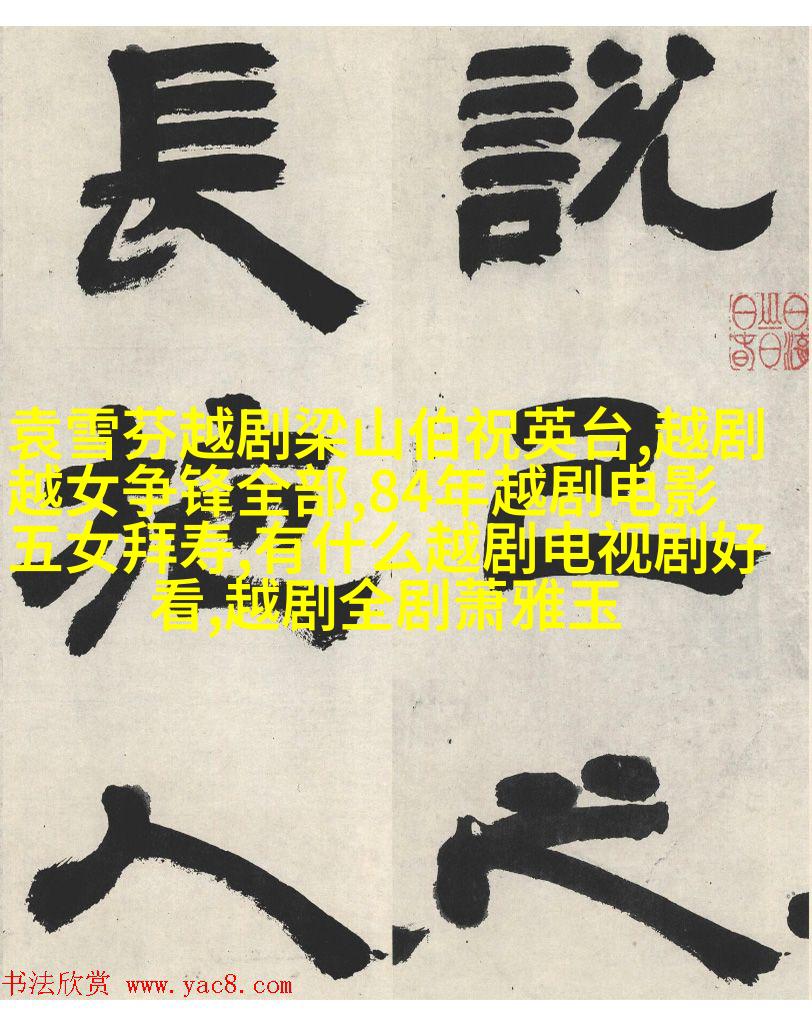 說己之
長施人
袁雪芬越剧梁山伯祝英台,越剧
越女争锋全部,84年越剧电影
五女拜寿,有什么越剧电视剧好
看,越剧全剧萧雅玉
书法欣赏 www.yac8.com